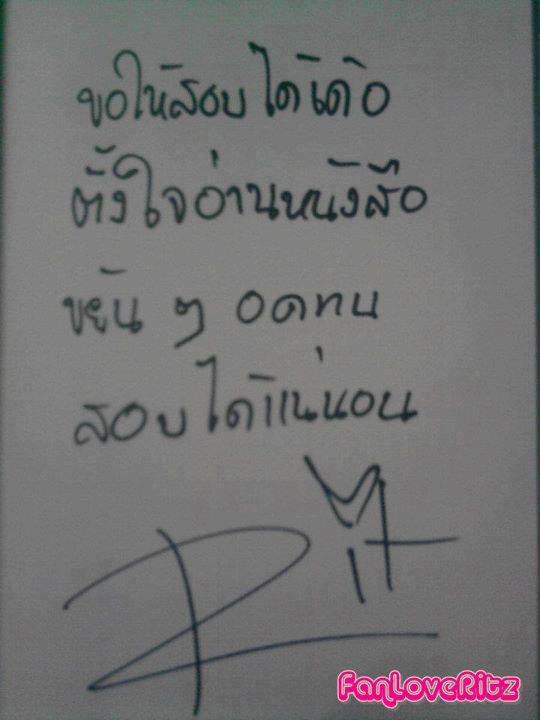 ขอให้สอบได้เด้อ
ตั้งใจอ่านหนังสือ
ขยัน ๆ อดทน
สอบได้แน่นอน
Rit
FanLoveRitz